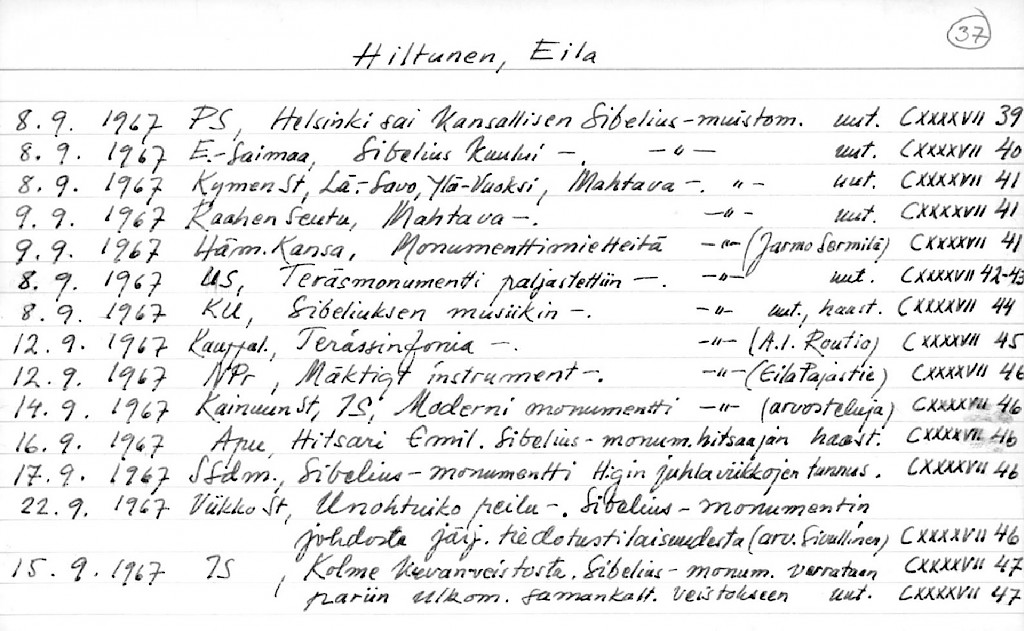 37
Hiltunen, Eila
8.9. 1967 PS, Helsinki sai Kansallisen Sibelius-muistom. uut. CXXXXVII 39
8.9. 1967 E.-Saimaa, Sibelius Kuului -. -"- uut. CXXXXVII 40
8.9. 1967 Kymen St, Lä-Savo, Ylä-Vuoksi, Mahtava -. "- uut. CXXXXVII 41
9.9. 1967 Raahen Seutu, Mahtava -. -"- uut. CXXXXVII 41
9.9. 1967 Häm. Kansa, Monumenttimietteitä -"- (Jarmo Sermilä) CXXXXVII 41
8.9. 1967 US, Teräsmonumentti paljastettiin -. -"- uut. CXXXXVII 42-43
8.9. 1967 KU, Sibeliuksen musiikin -. -"- uut., haast. CXXXXVII 44
12.9. 1967 Kauppal., Terässinfonia -. -"- (A.I. Routio) CXXXXVII 45
12.9. 1967 NPr, Mäktigt instrument -. -"- (Eila Pajastie) CXXXXVII 46
14.9. 1967 Kainuun St, IS, Moderni monumentti -"- (arvosteluja) CXXXXVII 46
16.9. 1967 Apu, Hitsari Emil. Sibelius-monum. hitsaajan haast. CXXXXVII 46
17.9. 1967 SSdm., Sibelius-monumentti H:gin juhlaviikkojen tunnus. CXXXXVII 46
22.9. 1967 Viikko St, Unohtuiko peilu -. Sibelius-monumentin
johdosta järj. tiedotustilaisuudesta (arv. Sivullinen) CXXXXVII 46
15.9. 1967 IS, Kolme kuvanveistosta. Sibelius-monum. verrataan CXXXXVII 47
pariin ulkom. samankalt. veistokseen uut. CXXXXVII 47